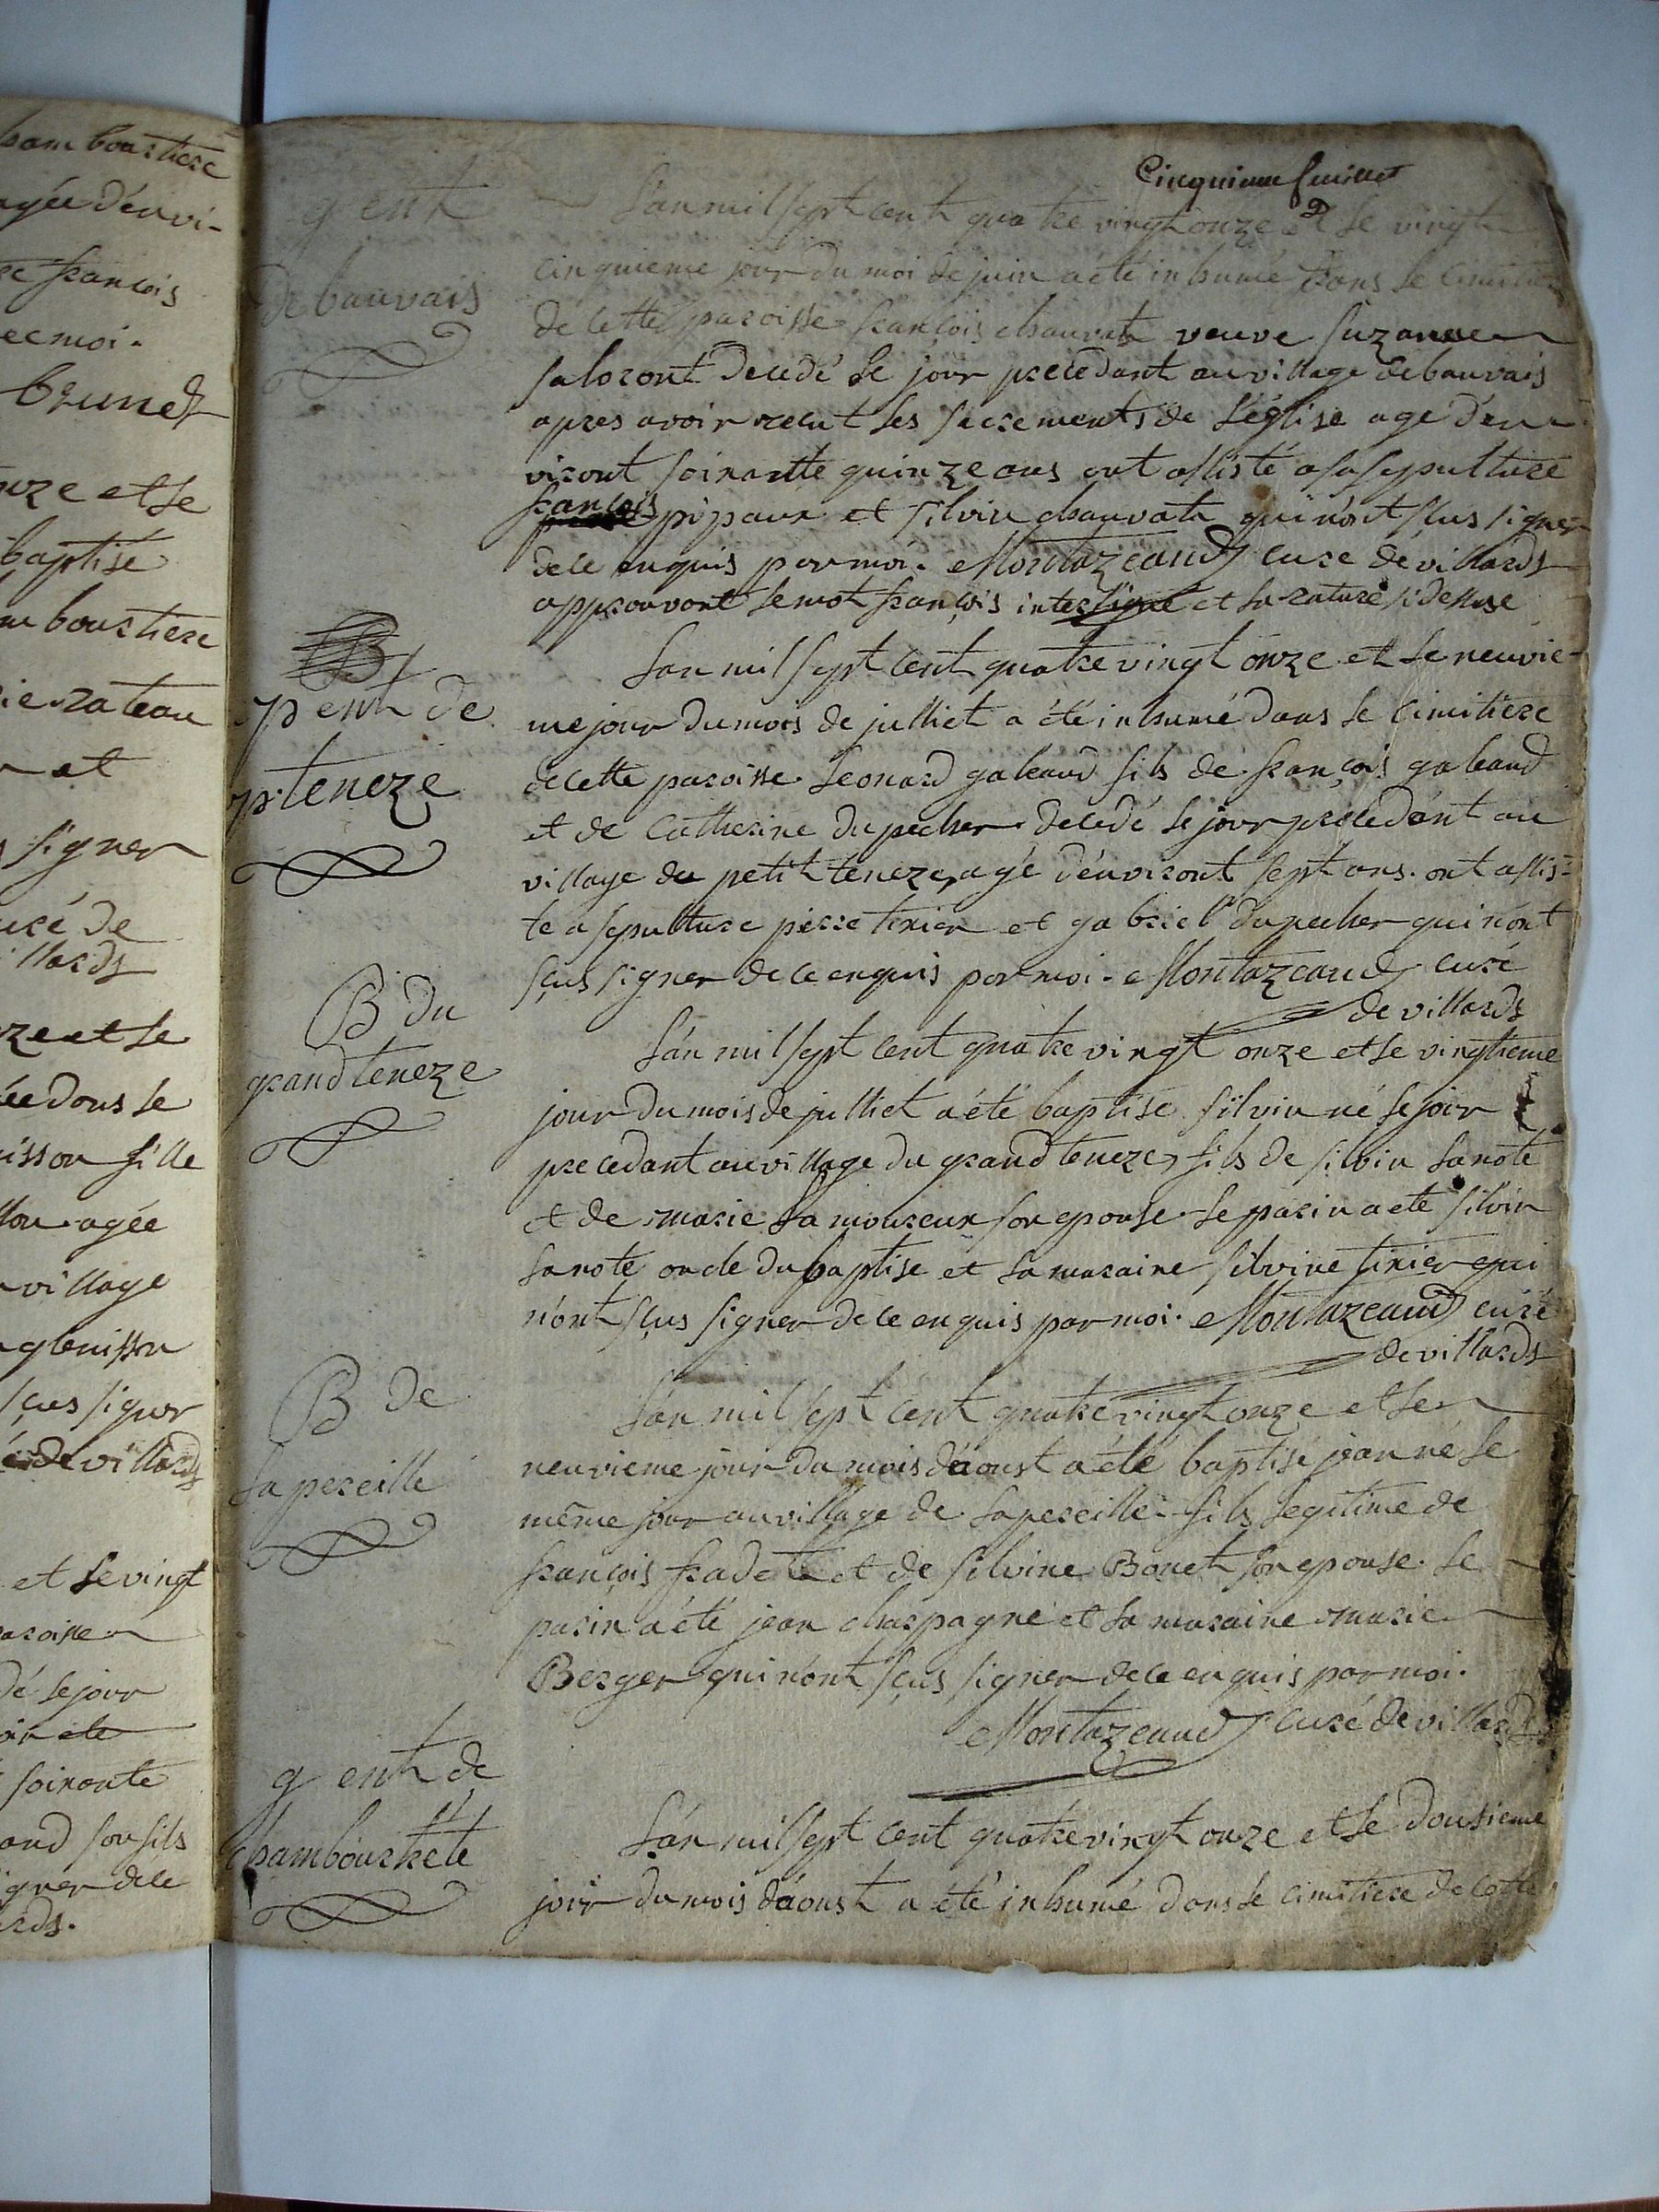 ham bourtiere
agée d'envi-
françois
ec moi.
brunet
onze et le
baptisé
m bourtiere
rie rateau
et
signer
curé de
villards
onze et le
ée dans le
isson fille
agée
village
glenisson
sçus signer
de villards
et le vingt
paroisse
dé le jour
soixante
aud son fils
signer de ce
ards.
Cinquieme feuillet
g ent
de bauvais
L'an mil sept cent quatre vingt onze et le vingt
cinquieme jour du moi de juin a été inhumé dans le cimitiere
de cette paroisse françois chauvat veuve suzanne
saloront decedé le jour precedant au village de bauvais
apres avoir recut les sacrements de l'église age d'en
viront soixante quinze ans ont assisté a sa sepulture
françois
pipaux et silvin chauvat qui n'ont sçus signer
de ce enquis par moi. Montazeaud curé de villards
approuvant le mot françois interligne et la rature si dessus
B
p ent de
p. teneze
L'an mil sept cent quatre vingt onze et le neuvie-
me jour du mois de julliet a été inhumé dans le cimitiere
de cette paroisse leonard gabaud fils de françois gabaud
et de catherine dupecher decedé le jour precedant au
village du petit teneze, agé d'environt sept ans. ont assis-
te a sepulture pierre tixier et gabriel dupecher qui n'ont
sçus signer de ce enquis par moi. Montazeaud curé
de villards
B du
grand teneze
L'an mil sept cent quatre vingt onze et le vingtieme
jour du mois de julliet a été baptisé silvin né le jour
precedant au village du grand teneze, fils de silvin lanote
et de marie lamoureux son epouse. le parin a eté silvin
lanote oncle du baptise et la maraine silvine tixier qui
n'ont sçus signer de ce enquis par moi. Montazeaud curé
de villards
B de
la pereille
L'an mil sept cent quatre vingt onze et le
neuvieme jour du mois d'aoust a été baptisé jean né le
même jour au village de la pereille. fils legitime de
françois fradet et de silvine Bonet son epouse. le
parin a été jean charpagne et la maraine marie
Berger qui n'ont sçus signer de ce enquis par moi.
Montazeaud curé de villards
g ent de
chambourtete
L'an mil sept cent quatre vingt onze et le dousieme
jour du mois d'aoust a été inhumé dans le cimitiere de cette